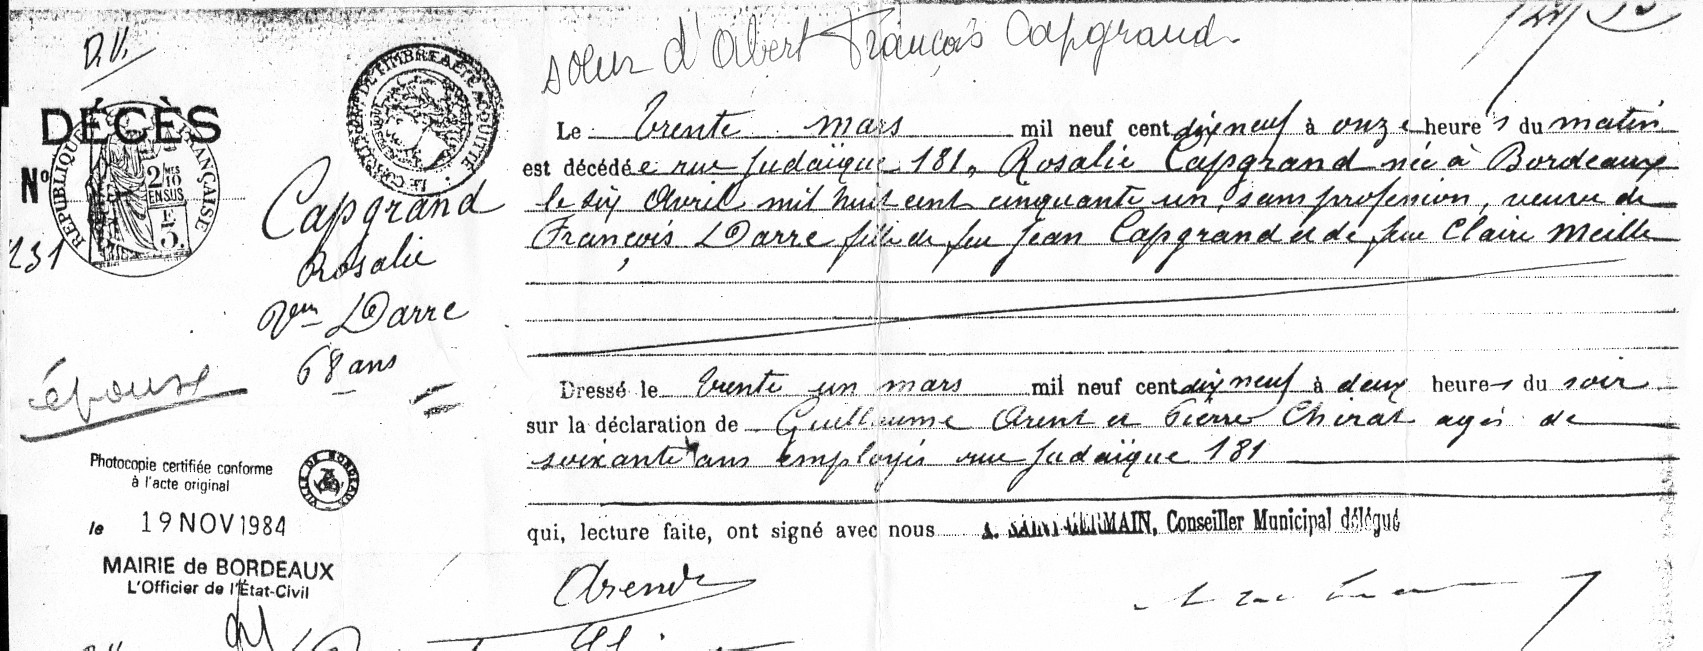 D.V.
soeur d'Albert François Capgrand
DÉCÈS
RÉPUBLIQUE FRANÇAISE
2 MES 10 EN SUS
3 F
N° 231
Capgrand
Rosalie
Veuve Darre
68 ans
épouse
Le Trente mars mil neuf cent dix neuf à onze heures du matin
est décédée rue Judaïque 181, Rosalie Capgrand née à Bordeaux
le six Avril mil huit cent cinquante un, sans profession, veuve de
François Darre fille de feu Jean Capgrand et de feue Claire Meille
Dressé le Trente un mars mil neuf cent dix neuf à deux heures du soir
sur la déclaration de Guillaume Arent et Pierre Chirat agés de
soixante ans employés rue Judaïque 181
qui, lecture faite, ont signé avec nous A. SAINT-GERMAIN, Conseiller Municipal délégué
Photocopie certifiée conforme
à l'acte original
VILLE DE BORDEAUX
le 19 NOV 1984
MAIRIE de BORDEAUX
L'Officier de l'État-Civil